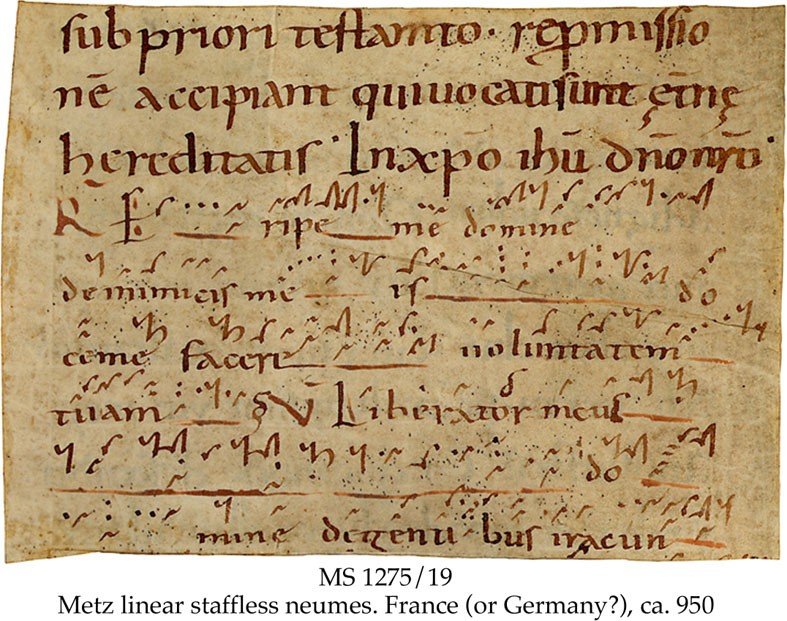 sub priori testamto · reꝓmissio
nē accipiant qui uocati sunt ęt̄nę
hereditatis · In xpō ihū dn̄o nr̄o ·
R E ripe me domine
de inimicis me is do
ceme facere uoluntatem
tuam V Liberator meus
do
mine degenti bus iracun
MS 1275/19
Metz linear staffless neumes. France (or Germany?), ca. 950